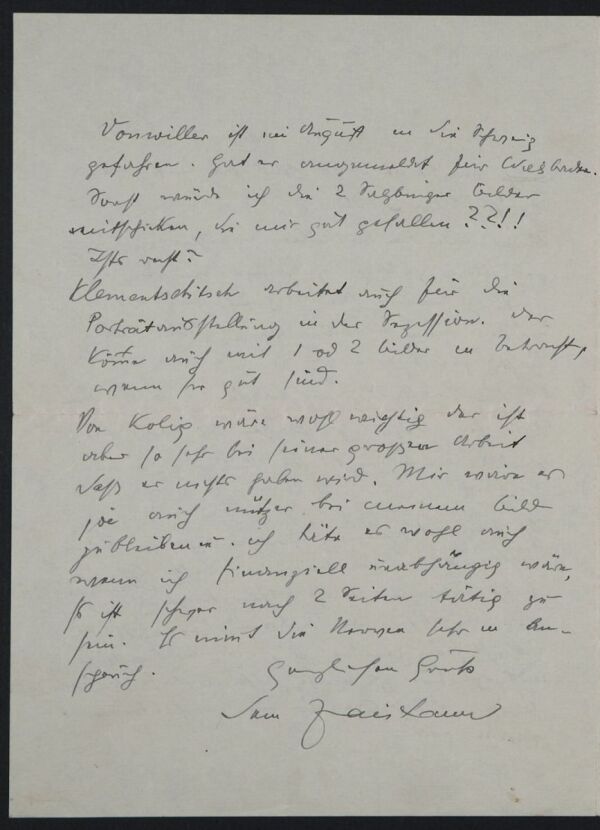 Vonwiller ist im August in die Schweiz
gefahren. Hat er angemeldet für Wiesbaden.
Sonst würde ich die 2 Salzburger Bilder
mitschicken, die mir gut gefallen ??!!
Ists recht?
Klementschitsch arbeitet auch für die
Porträtausstellung in der Sezession. Der
käme auch mit 1 od 2 Bilder in Betracht,
wenn sie gut sind.
Von Kolig wäre wohl wichtig der ist
aber so sehr bei seiner großen Arbeit
daß er nichts haben wird. Mir wäre es
ja auch nützer bei meinem Bild
zu bleiben u. ich täte es wohl auch
wenn ich finanziell unabhängig wäre,
Es ist schwer nach 2 Seiten tätig zu
sein. Es nimt die Nerven sehr in An-
spruch.
Herzlichen Gruß
Dein Zaislauer